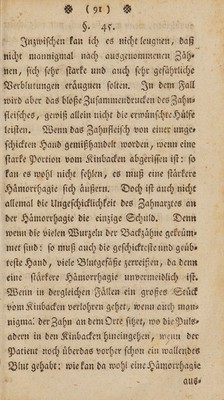 ※ (91) ※
§. 45.
Inzwischen kan ich es nicht leugnen, daß
nicht mannigmal nach ausgenommenen Zäh-
nen, sich sehr starke und auch sehr gefährliche
Verblutungen eräugnen solten. In dem Fall
wird aber das bloße Zusammendrucken des Zahn-
fleisches, gewiß allein nicht die erwünschte Hülfe
leisten. Wenn das Zahnfleisch von einer unge-
schickten Hand gemißhandelt worden, wenn eine
starke Portion vom Kinbacken abgerissen ist: so
kan es wohl nicht fehlen, es muß eine stärkere
Hämorrhagie sich äußern. Doch ist auch nicht
allemal die Ungeschicklichkeit des Zahnarztes an
der Hämorrhagie die einzige Schuld. Denn
wenn die vielen Wurzeln der Backzähne gekrüm-
met sind: so muß auch die geschickteste und geüb-
teste Hand, viele Blutgefäße zerreißen, da denn
eine stärkere Hämorrhagie unvermeidlich ist.
Wenn in dergleichen Fällen ein großes Stück
vom Kinbacken verlohren gehet, wenn auch man-
nigma. der Zahn an dem Orte sitzet, wo die Puls-
adern in den Kinbacken hineingehen, wenn der
Patient noch überdas vorher schon ein wallendes
Blut gehabt: wie kan da wohl eine Hämorrhagie
aus-